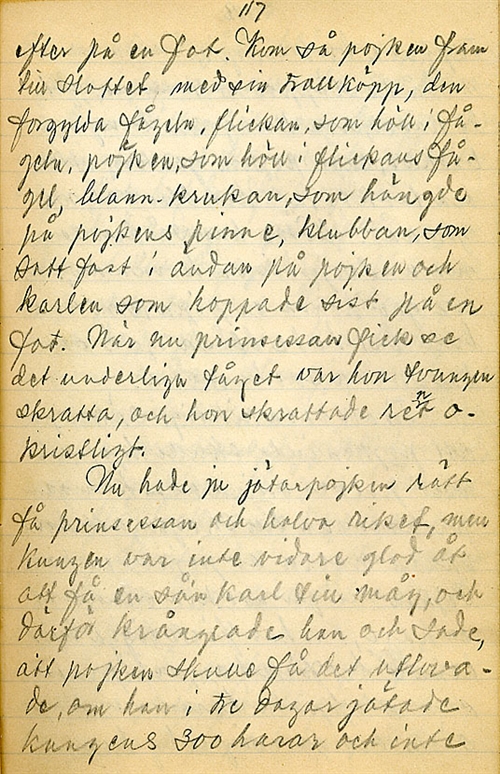 117
efter på en fot. Kom så pojken fram
till slottet, med sin trollkäpp, den
förgylda fågeln, flickan, som höll i få-
geln, pojken, som höll i flickans få-
gel, blann-krukan, som hängde
på pojkens pinne, klubban, som
satt fast i ändan på pojken och
karlen som hoppade sist på en
fot. När nu prinsessan fick se
det underliga tåget var hon tvungen
skratta, och hon skrattade rett o-
kristligt.
Nu hade ju jätarpojken rätt
få prinsessan och halva riket, men
kungen var inte vidare glad åt
att få en sån karl till måg, och
därför krånglade han och sade,
att pojken skulle få det utlova-
de, om han i tre dagar jätade
kungens 300 harar och inte